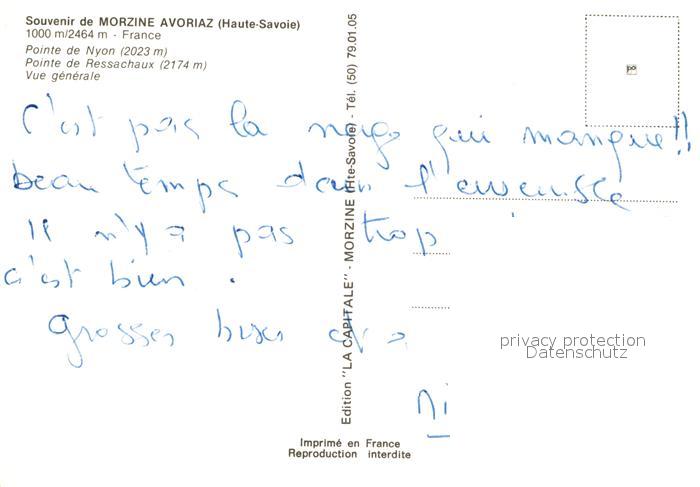 Souvenir de MORZINE AVORIAZ (Haute-Savoie)
1000 m/2464 m - France
Pointe de Nyon (2023 m)
Pointe de Ressachaux (2174 m)
Vue générale
C'est pas la neige qui manque!!
beau temps dans l'ensemble
Il n'y a pas trop
c'est bien.
Grosses bises
Ni
Edition "LA CAPITALE" - MORZINE (Hte-Savoie) - Tél. (50) 79.01.05
privacy protection
Datenschutz
Imprimé en France
Reproduction interdite